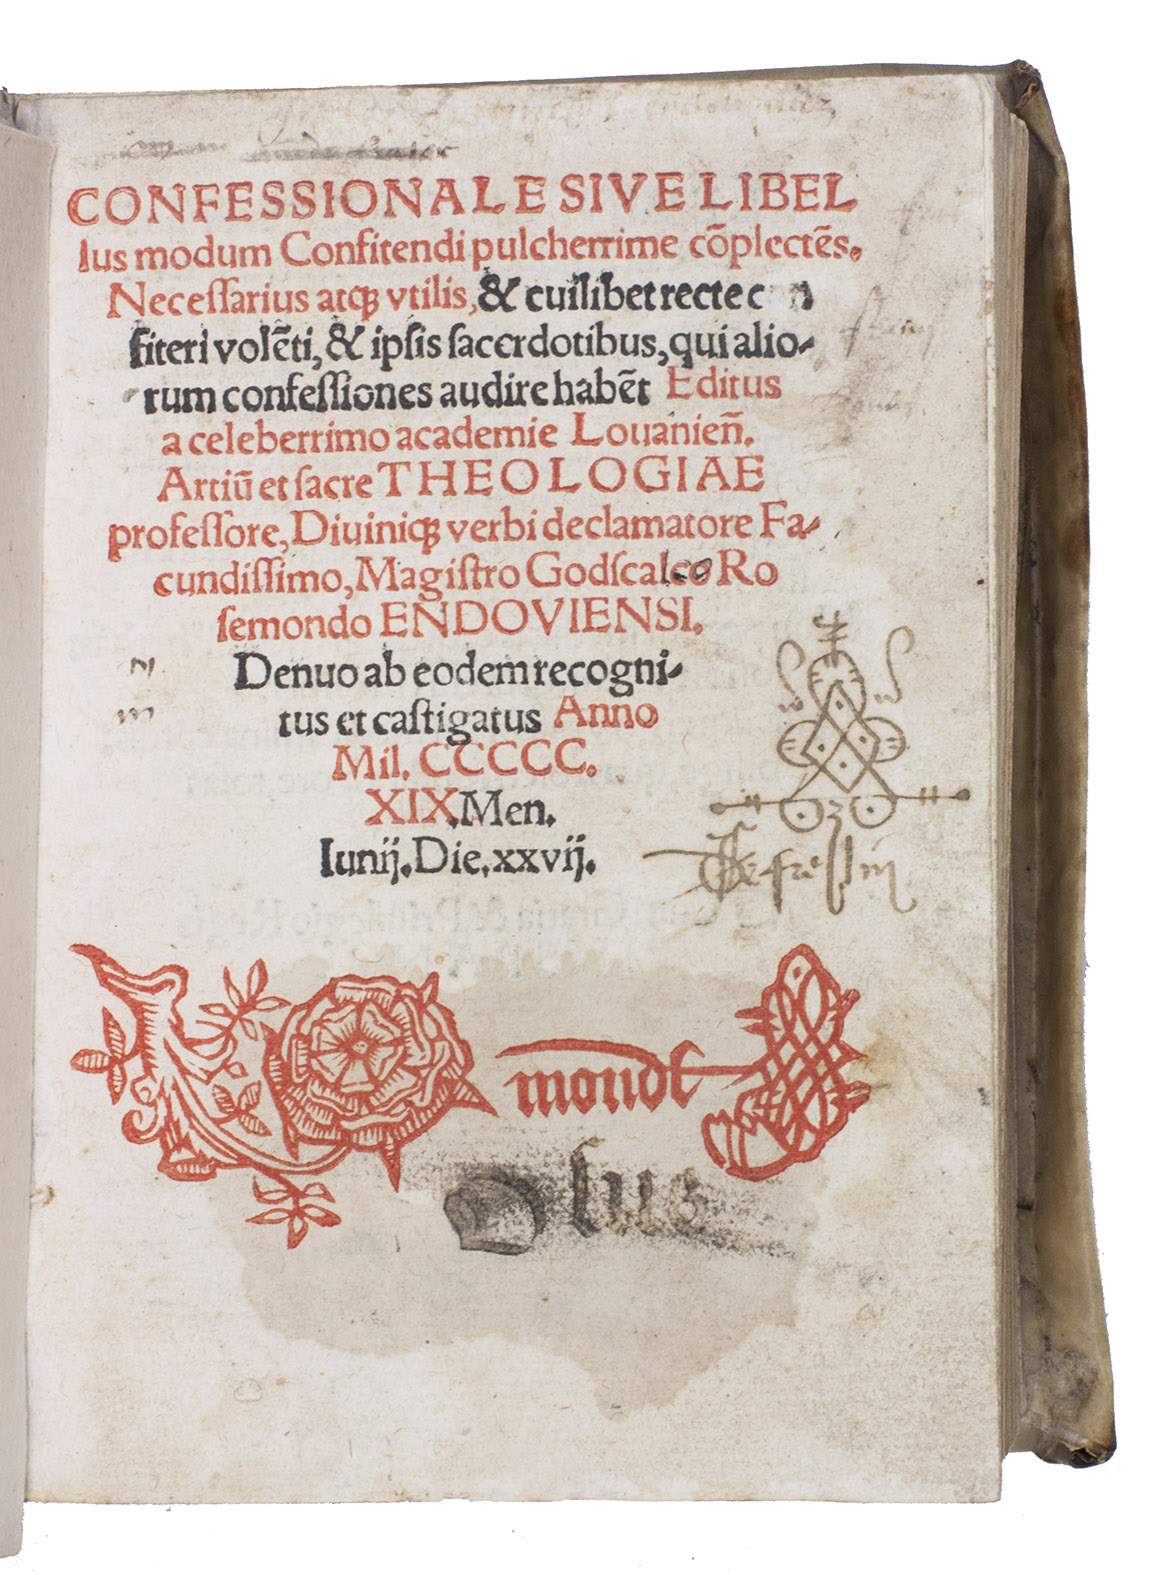 CONFESSIONALE SIVE LIBEL
lus modum Confitendi pulcherrime cõplectẽs.
Necessarius atqꝫ vtilis, & cuilibet recte c n
fiteri volẽti, & ipsis sacerdotibus, qui alio-
rum confessiones audire habẽt Editus
a celeberrimo academie Louanieñ.
Artiũ et sacre THEOLOGIAE
professore, Diuiniqꝫ verbi declamatore Fa-
cundissimo, Magistro Godscalco Ro
semondo ENDOVIENSI.
Denuo ab eodem recogni-
tus et castigatus Anno
Mil. CCCCC.
XIX. Men.
Iunij. Die. xxvij.
mondt
sus